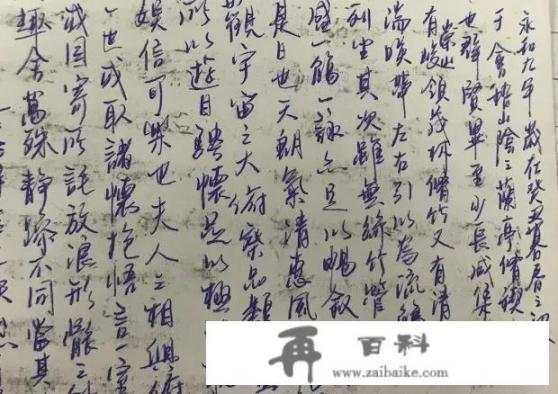 永和九年歲在癸丑暮春之初
于會稽山陰之蘭亭脩禊
也群賢畢至少長咸集
崇山
有峻領茂林脩竹又有清
湍暎帶左右引以為流觴
列坐其次雖無絲竹管
盛一觴一詠亦足以暢敘
是日也天朗氣清惠風
觀宇宙之大俯察品類
所以遊目騁懷足以極
娛信可樂也夫人之相與俯
一世或取諸懷抱悟言一室
或因寄所託放浪形骸之
趣舍萬殊靜躁不同當其
再 百科
www.zaibaike.com